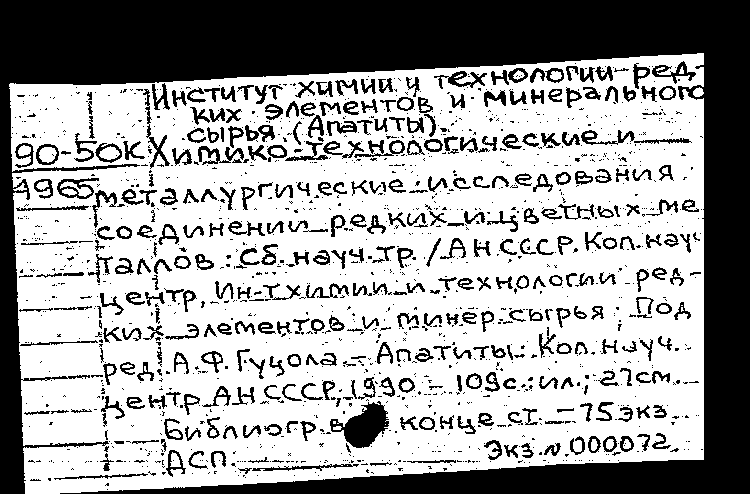 Институт химии и технологии ред-
ких элементов и минерального
сырья (Апатиты).
90-50К Химико-технологические и
4965 металлургические исследования
соединений редких и цветных ме
таллов : Сб. науч. тр. / АН СССР. Кол. науч
центр, Ин-т химии и технологии ред-
ких элементов и минер. сырья ; Под
ред. А.Ф. Гуцола. – Апатиты : Кол. науч.
центр АН СССР, 1990. – 109 с. : ил.; 27 см.
Библиогр. в конце ст. – 75 экз.
ДСП. Экз. N 000072.